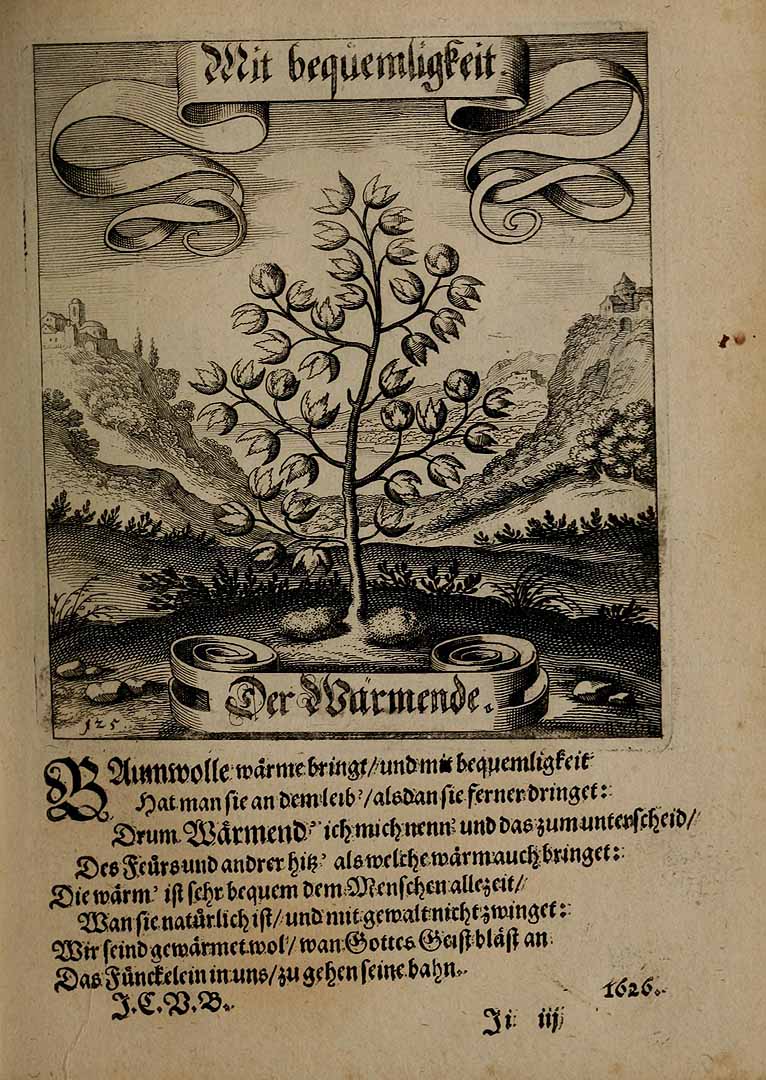 Mit bequemligkeit.
Der Wärmende.
125.
BAumwolle wärme bringt/ und mit bequemligkeit
Hat man sie an dem leib'/ alsdan sie ferner dringet:
Drum Wärmend' ich mich nenn' und das zum unterscheid/
Des Feürs und andrer hitz' als welche wärm auch bringet:
Die wärm' ist sehr bequem dem Menschen allezeit/
Wan sie natürlich ist/ und mit gewalt nicht zwinget:
Wir seind gewärmet wol/ wan Gottes Geist bläst an
Das Fünckelein in uns/ zu gehen seine bahn.
J. C. V. B.
1626.
Ji iij